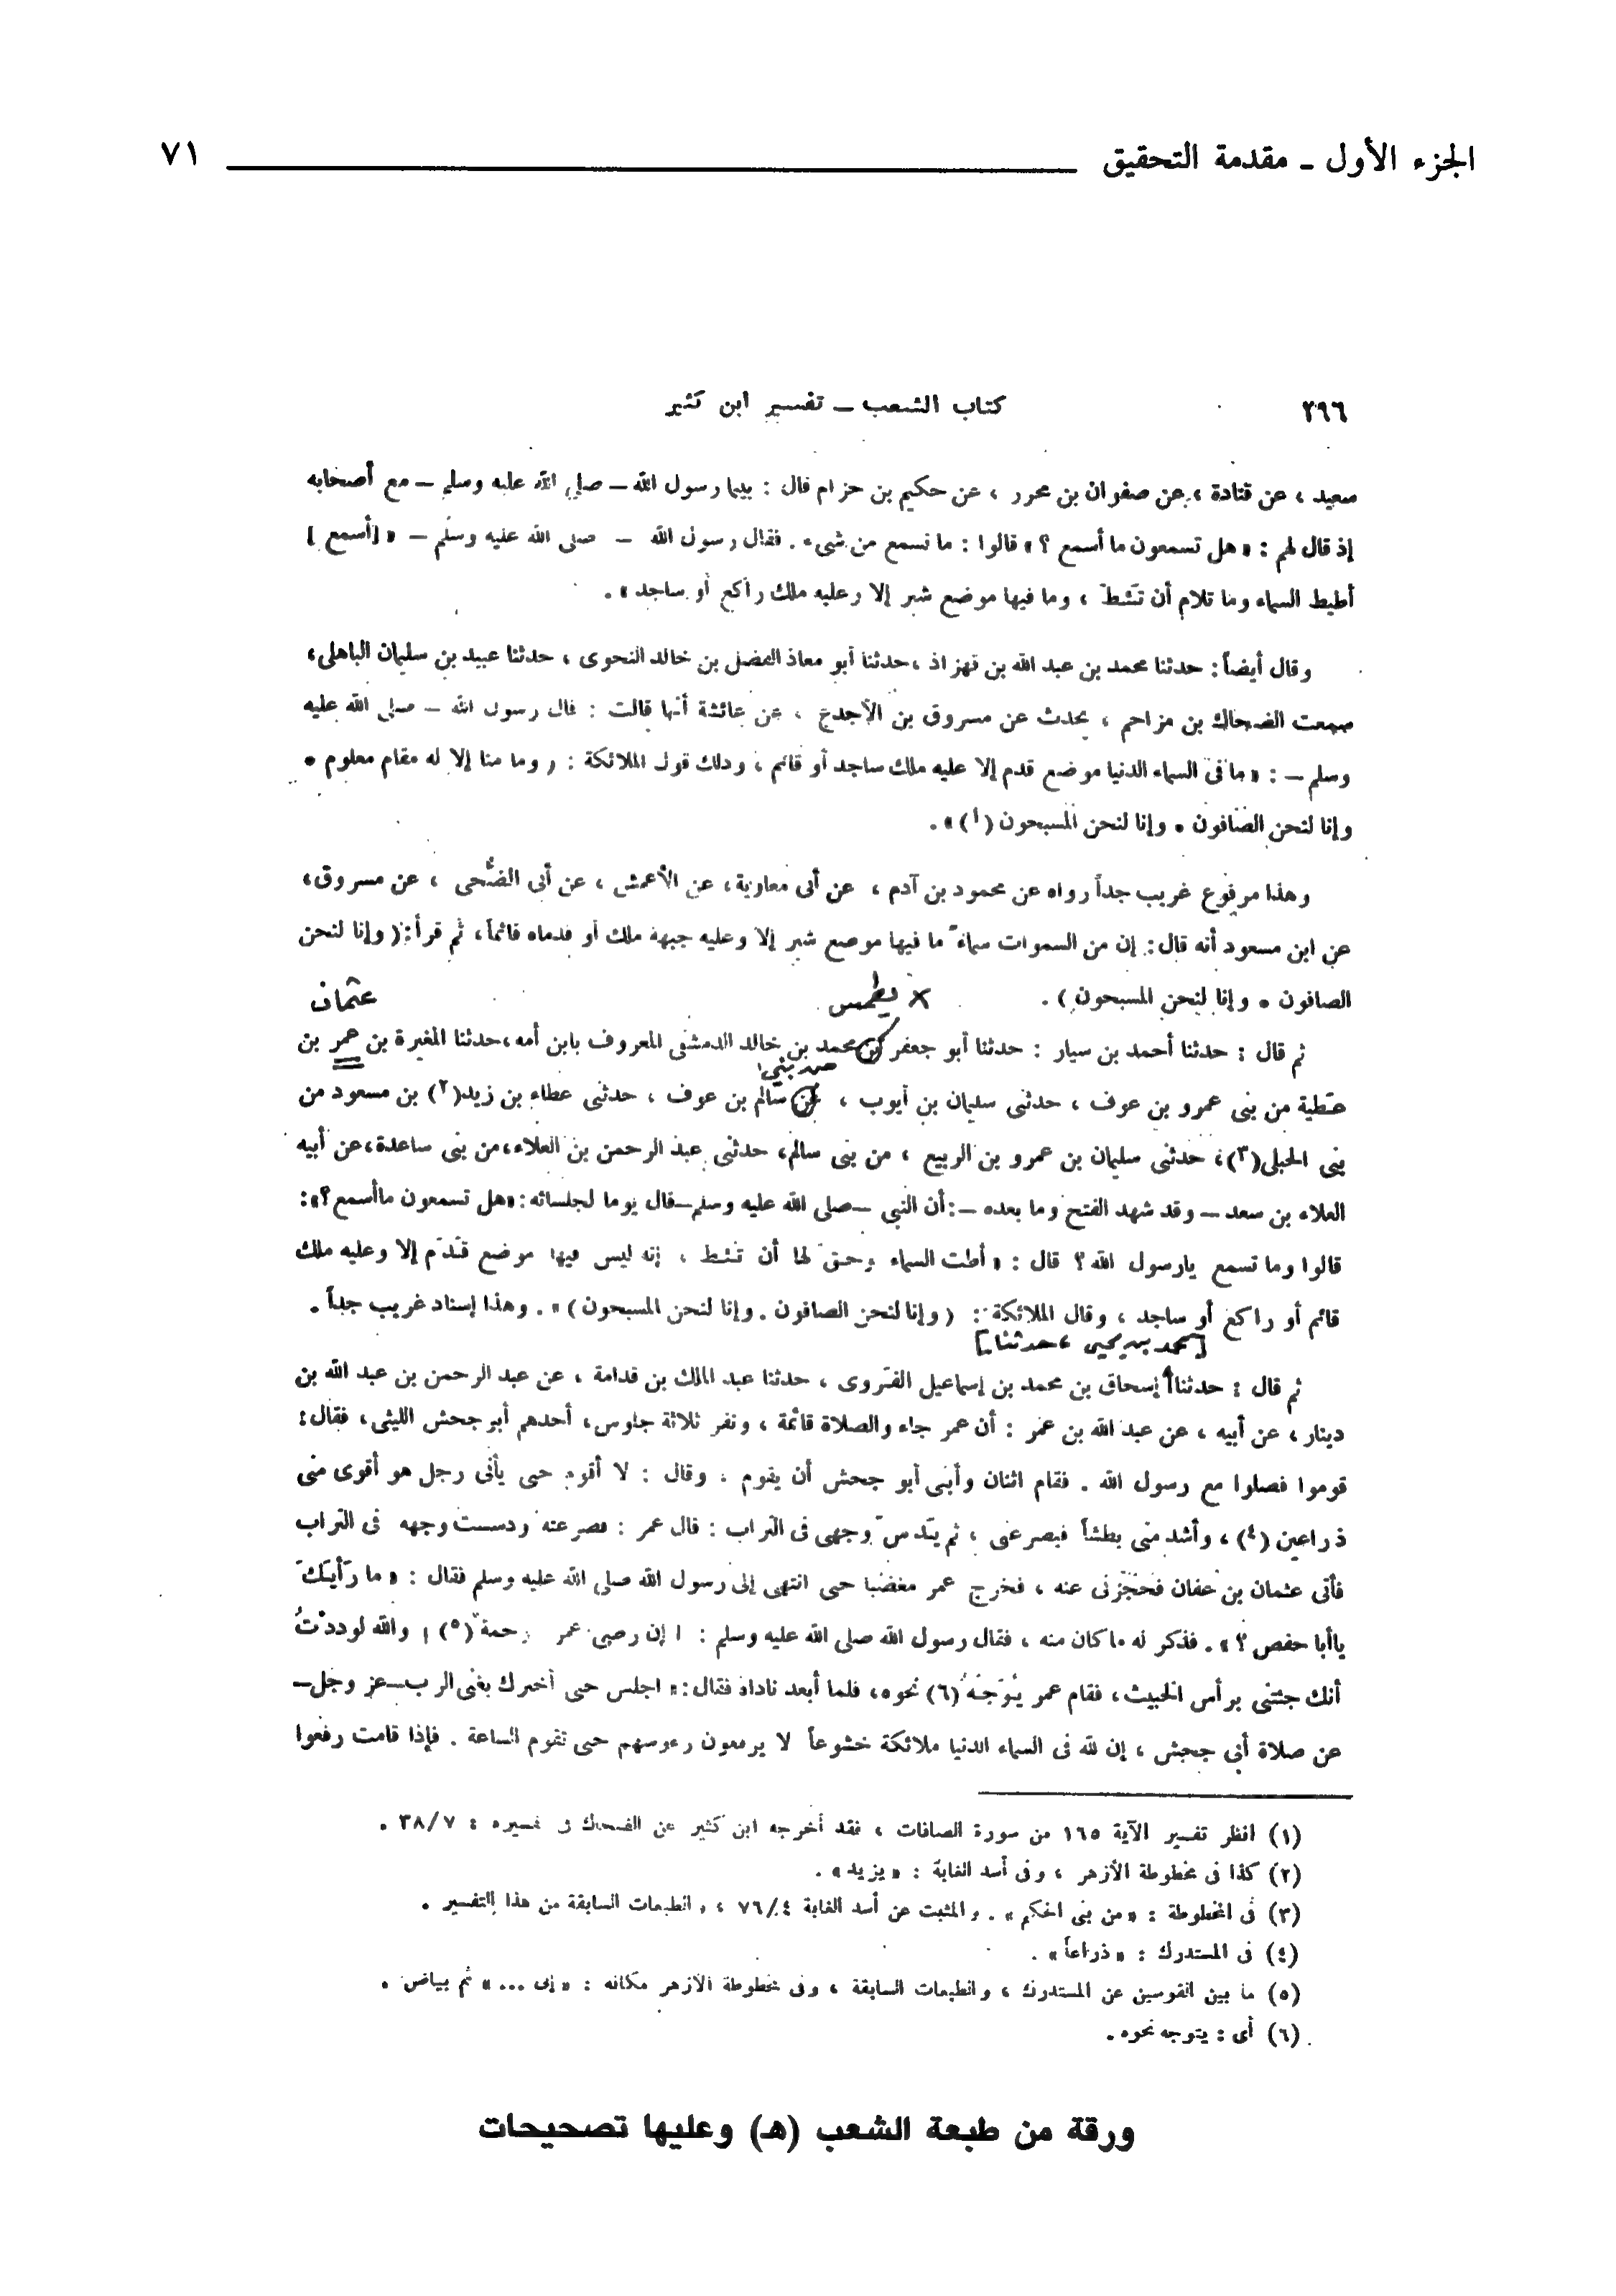 الجزء الأول ـ مقدمة التحقيق ٧١
٢٩٦ كتاب الشعب – تفسير ابن كثير
سعيد ، عن قتادة ، عن صفوان بن محرر ، عن حكيم بن حزام قال : بينما رسول الله – صلى الله عليه وسلم – مع أصحابه
إذ قال لهم : « هل تسمعون ما أسمع ؟ » قالوا : ما نسمع من شيء . فقال رسول الله – صلى الله عليه وسلم – « [أسمع ]
أطيط السماء وما تلام أن تئط ، وما فيها موضع شبر إلا وعليه ملك راكع أو ساجد » .
وقال أيضاً : حدثنا محمد بن عبد الله بن قهزاذ ، حدثنا أبو معاذ الفضل بن خالد النحوى ، حدثنا عبيد بن سليمان الباهلى ،
سمعت الضحاك بن مزاحم ، يحدث عن مسروق بن الأجدع ، عن عائشة أنها قالت : قال رسول الله – صلى الله عليه
وسلم – : « ما فى السماء الدنيا موضع قدم إلا عليه ملك ساجد أو قائم ، وذلك قول الملائكة : ( وما منا إلا له مقام معلوم •
وإنا لنحن الصافون • وإنا لنحن المسبحون (١) » .
وهذا مرفوع غريب جداً رواه عن محمود بن آدم ، عن أبى معاوية ، عن الأعمش ، عن أبى الضُّحى ، عن مسروق ،
عن ابن مسعود أنه قال : إن من السموات سماء ما فيها موضع شبر إلا وعليه جبهة ملك أو قدماه قائماً ، ثم قرأ : ( وإنا لنحن
الصافون • وإنا لنحن المسبحون ) . × يطمس عثمان
ثم قال : حدثنا أحمد بن سيار : حدثنا أبو جعفر بن محمد بن خالد الدمشقى المعروف بابن أمه ، حدثنا المغيرة بن عمر بن
من بني
عطية من بنى عمرو بن عوف ، حدثنى سليمان بن أيوب ، عن سالم بن عوف ، حدثنى عطاء بن زيد(٢) بن مسعود من
بنى الحبلى(٣) ، حدثنى سليمان بن عمرو بن الربيع ، من بنى سالم ، حدثنى عبد الرحمن بن العلاء ، من بنى ساعدة ، عن أبيه
العلاء بن سعد – وقد شهد الفتح وما بعده – : أن النبى – صلى الله عليه وسلم – قال يوما لجلسائه : « هل تسمعون ما أسمع ؟ » :
قالوا وما تسمع يارسول الله ؟ قال : « أطت السماء وحق لها أن تئط ، إنه ليس فيها موضع قَدَم إلا وعليه ملك
قائم أو راكع أو ساجد ، وقال الملائكة : ( وإنا لنحن الصافون . وإنا لنحن المسبحون ) » . وهذا إسناد غريب جداً .
[محمد بن يحيى ، حدثنا]
ثم قال : حدثنا إسحاق بن محمد بن إسماعيل الفَروى ، حدثنا عبد الملك بن قدامة ، عن عبد الرحمن بن عبد الله بن
دينار ، عن أبيه ، عن عبد الله بن عمر : أن عمر جاء والصلاة قائمة ، ونفر ثلاثة جلوس ، أحدهم أبو جحش الليثى ، فقال :
قوموا فصلوا مع رسول الله . فقام اثنان وأبى أبو جحش أن يقوم ، وقال : لا أقوم حتى يأتى رجل هو أقوى منى
ذراعين (٤) ، وأشد منى بطشاً فيصرعنى ، ثم يَدس وجهى فى التراب : قال عمر : فصرعته ودسست وجهه فى التراب
فأتى عثمان بن عفان فحَجَزنى عنه ، فخرج عمر مغضبا حتى انتهى إلى رسول الله صلى الله عليه وسلم فقال : « ما رَأيكَ
ياأبا حفص ؟ » . فذكر له ما كان منه ، فقال رسول الله صلى الله عليه وسلم : إن رضى عمر رحمة (٥) ، والله لوددْتُ
أنك جئتنى برأس الخبيث ، فقام عمر يُوَجّه (٦) نحوه ، فلما أبعد ناداه فقال : « اجلس حتى أخبرك بغنى الرب – عز وجل –
عن صلاة أبى جحش ، إن لله فى السماء الدنيا ملائكة خشوعاً لا يرفعون رءوسهم حتى تقوم الساعة . فإذا قامت رفعوا
(١) انظر تفسير الآية ١٦٥ من سورة الصافات ، فقد أخرجه ابن كثير عن الضحاك فى تفسيره : ٣٨/٧ .
(٢) كذا فى مخطوطة الأزهر ، وفى أسد الغابة : « يزيد » .
(٣) فى المخطوطة : « من بنى الحكم » . والمثبت عن أسد الغابة ٧٦/٤ ، والطبعات السابقة من هذا التفسير .
(٤) فى المستدرك : « ذراعاً » .
(٥) ما بين القوسين عن المستدرك ، والطبعات السابقة ، وفى مخطوطة الأزهر مكانه : « إلى ... » ثم بياض .
(٦) أى : يتوجه نحوه .
ورقة من طبعة الشعب (هـ) وعليها تصحيحات